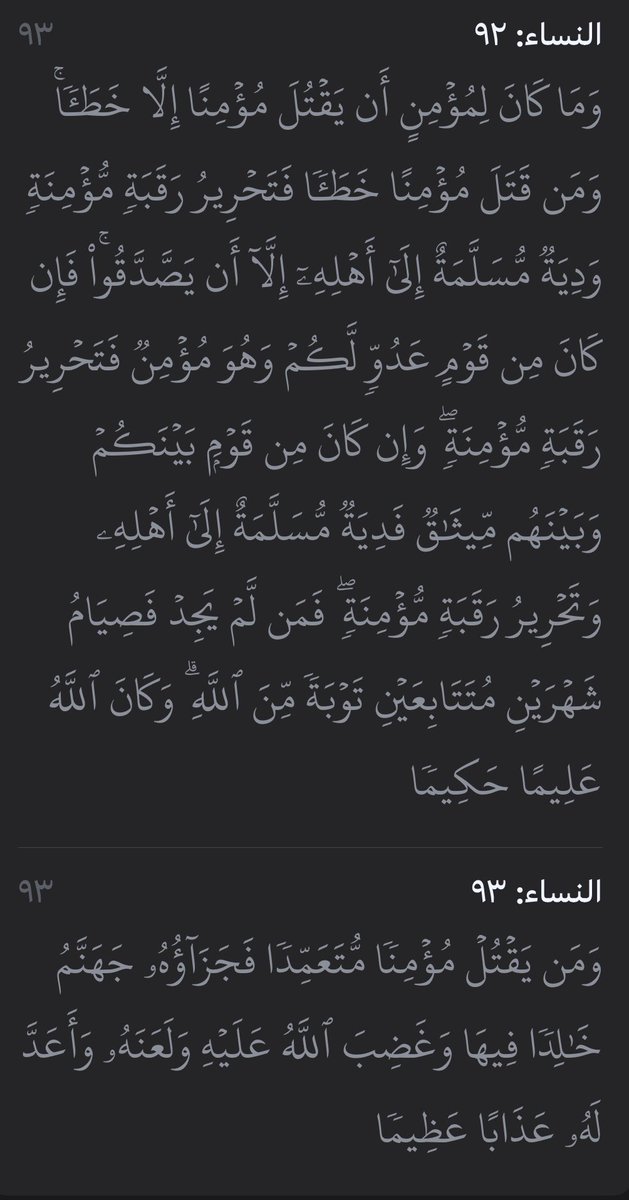 النساء: ٩٢ ٩٣
وَمَا كَانَ لِمُؤۡمِنٍ أَن يَقۡتُلَ مُؤۡمِنًا إِلَّا خَطَـٔٗاۚ
وَمَن قَتَلَ مُؤۡمِنًا خَطَـٔٗا فَتَحۡرِيرُ رَقَبَةٖ مُّؤۡمِنَةٖ
وَدِيَةٞ مُّسَلَّمَةٌ إِلَىٰٓ أَهۡلِهِۦٓ إِلَّآ أَن يَصَّدَّقُواْۚ فَإِن
كَانَ مِن قَوۡمٍ عَدُوّٖ لَّكُمۡ وَهُوَ مُؤۡمِنٞ فَتَحۡرِيرُ
رَقَبَةٖ مُّؤۡمِنَةٖۖ وَإِن كَانَ مِن قَوۡمِۭ بَيۡنَكُمۡ
وَبَيۡنَهُم مِّيثَٰقٞ فَدِيَةٞ مُّسَلَّمَةٌ إِلَىٰٓ أَهۡلِهِۦ
وَتَحۡرِيرُ رَقَبَةٖ مُّؤۡمِنَةٖۖ فَمَن لَّمۡ يَجِدۡ فَصِيَامُ
شَهۡرَيۡنِ مُتَتَابِعَيۡنِ تَوۡبَةٗ مِّنَ ٱللَّهِۗ وَكَانَ ٱللَّهُ
عَلِيمًا حَكِيمٗا
النساء: ٩٣ ٩٣
وَمَن يَقۡتُلۡ مُؤۡمِنٗا مُّتَعَمِّدٗا فَجَزَآؤُهُۥ جَهَنَّمُ
خَٰلِدٗا فِيهَا وَغَضِبَ ٱللَّهُ عَلَيۡهِ وَلَعَنَهُۥ وَأَعَدَّ
لَهُۥ عَذَابًا عَظِيمٗا